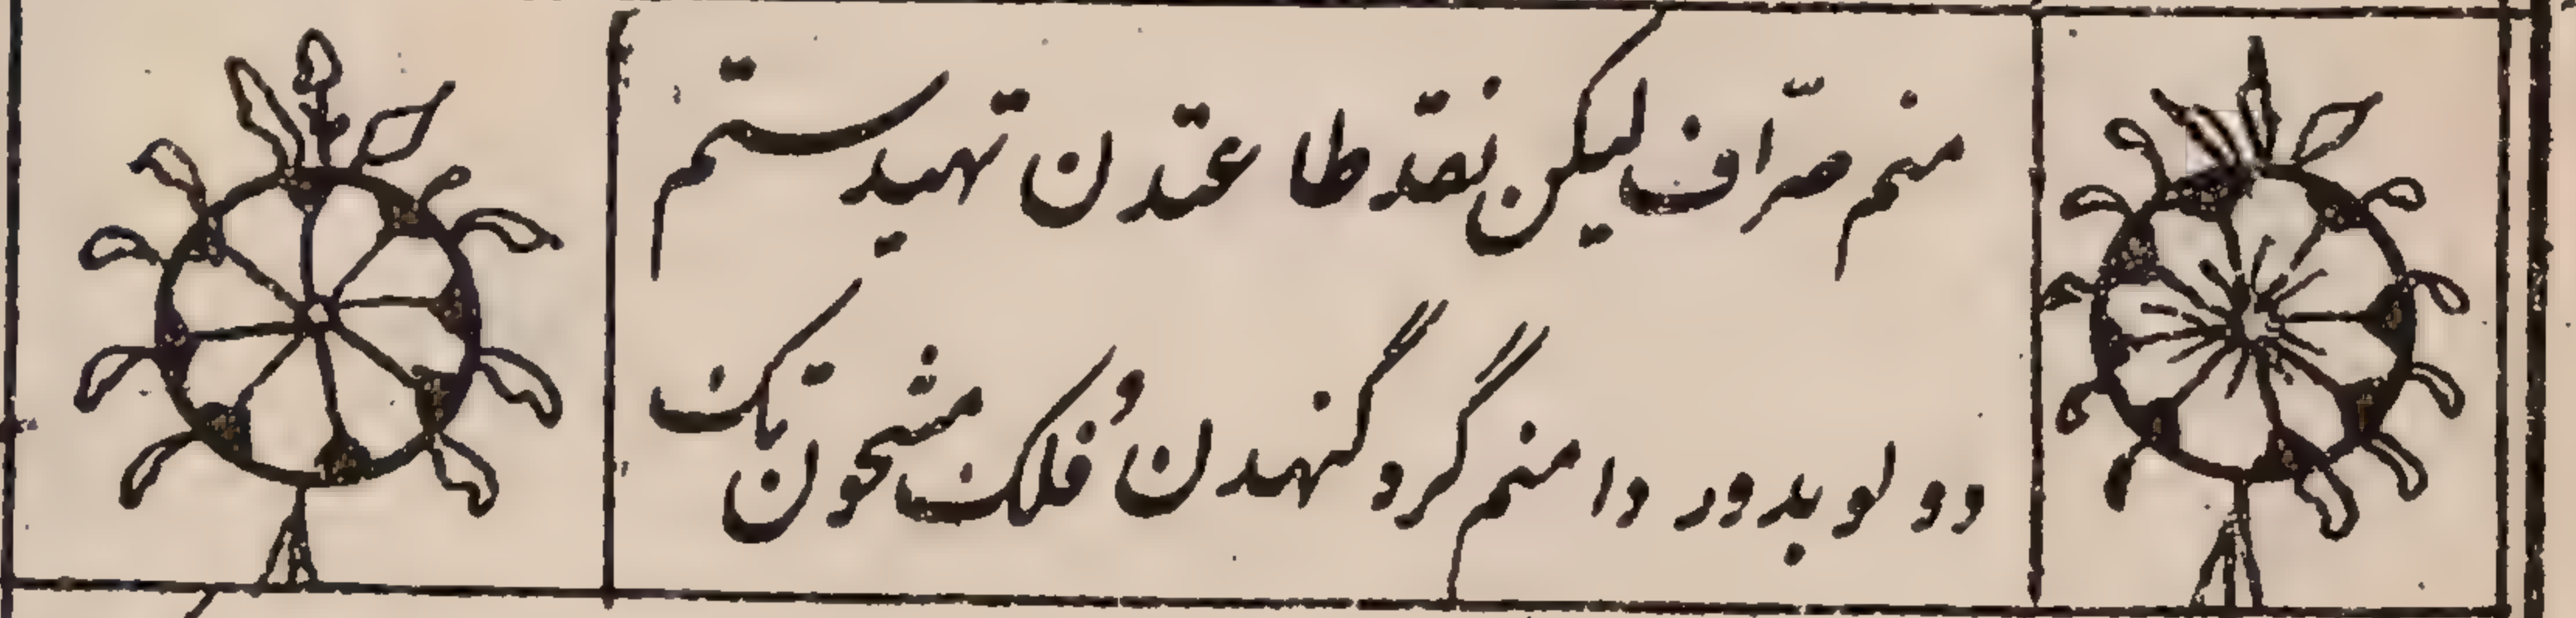 منم صرّاف لیکن نقد طاعتدن تهیدستم
دولو بدور دامنم گرد گنهدن و فلک مشحون تک